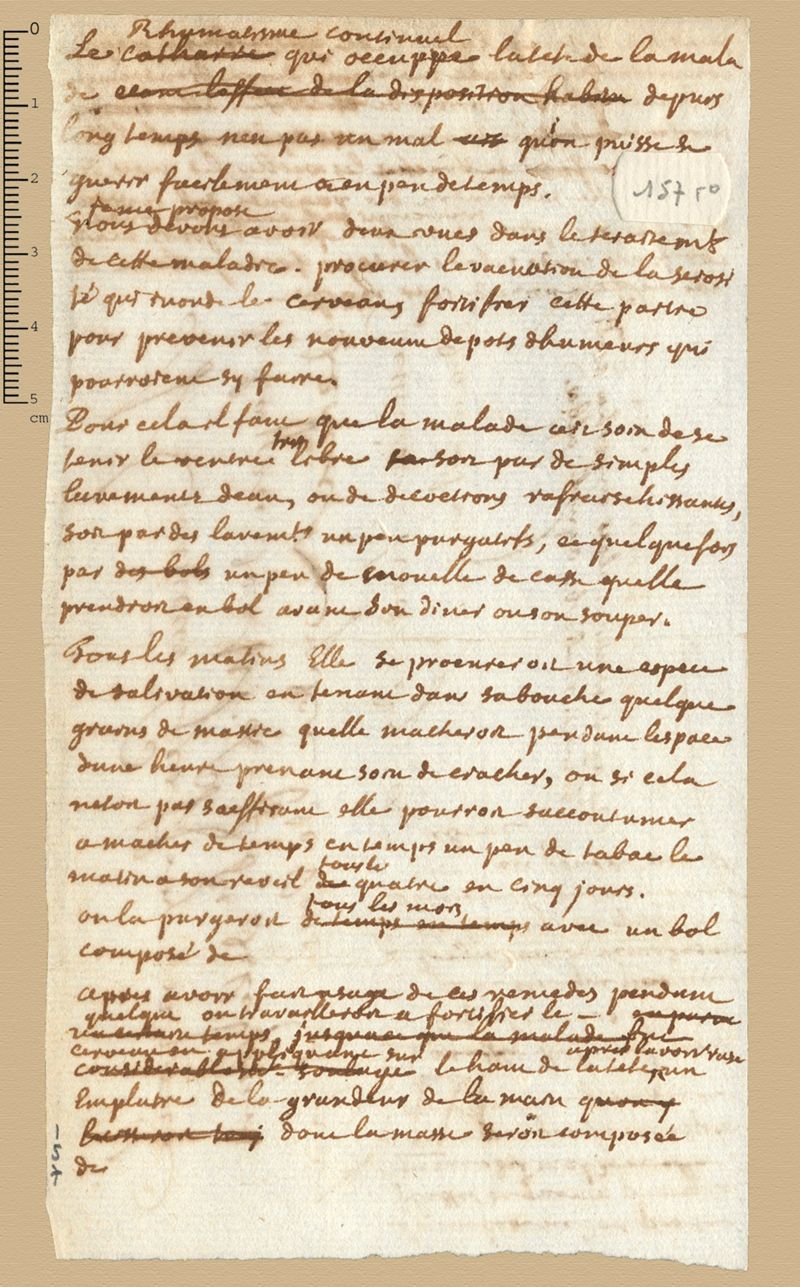 Rhumatisme continuel
Le catharre qui occuppe la tete de la mala
de etant leffet de la disposition habitu depuis
long temps nen pas un mal qu'on puisse se
guerir facilement & en peu de temps.
propose
nous devons avoir deux vues dans le traitemt
de cette maladie. procurer levacuation de la serosi
té qui inonde le cerveau, fortifier cette partie
pour prevenir les nouveaux depots dhumeurs qui
pourroient sy faire.
Pour cela il faut que la malade ait soin de se
tres
tenir le ventre libre soit par de simples
lavements deau, ou de decoctions rafraischissantes,
soit par des lavemts un peu purgatifs, et quelquefois
par des bols un peu de mouelle de casse quelle
prendroit en bol avant son diner ou son souper.
Tous les matins Elle se procureroit une espece
de salivation en tenant dans sa bouche quelque
grains de mastic quelle macheroit pendant lespace
dune heure prenant soin de cracher, ou si cela
netoit pas saeffisant elle pourroit saccoutumer
a macher de temps en temps un peu de tabac le
tous le
matin a son reveil de quatre en cinq jours.
tous les mois
on la purgeroit de temps en temps avec un bol
composé de
apres avoir fait usage de ces remedes pendant
quelque on travailleroit a fortifier le
temps, jusqua ce que la malade fut
cerveau en appliquant sur apres lavoir rasé
considerablemt soulagé le haut de la tete, un
Emplatre de la grandeur de la main
dont la masse seroit composée
de
157
157
0
1
2
3
4
5
cm